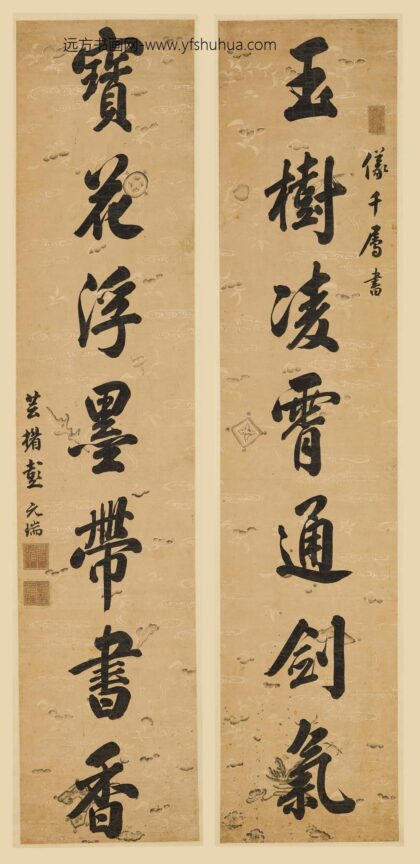 远方书画网-www.yfshuhua.com
玉樹凌霄通劍氣
儀千屬書
寶花浮墨帶書香
芸楣彭元瑞